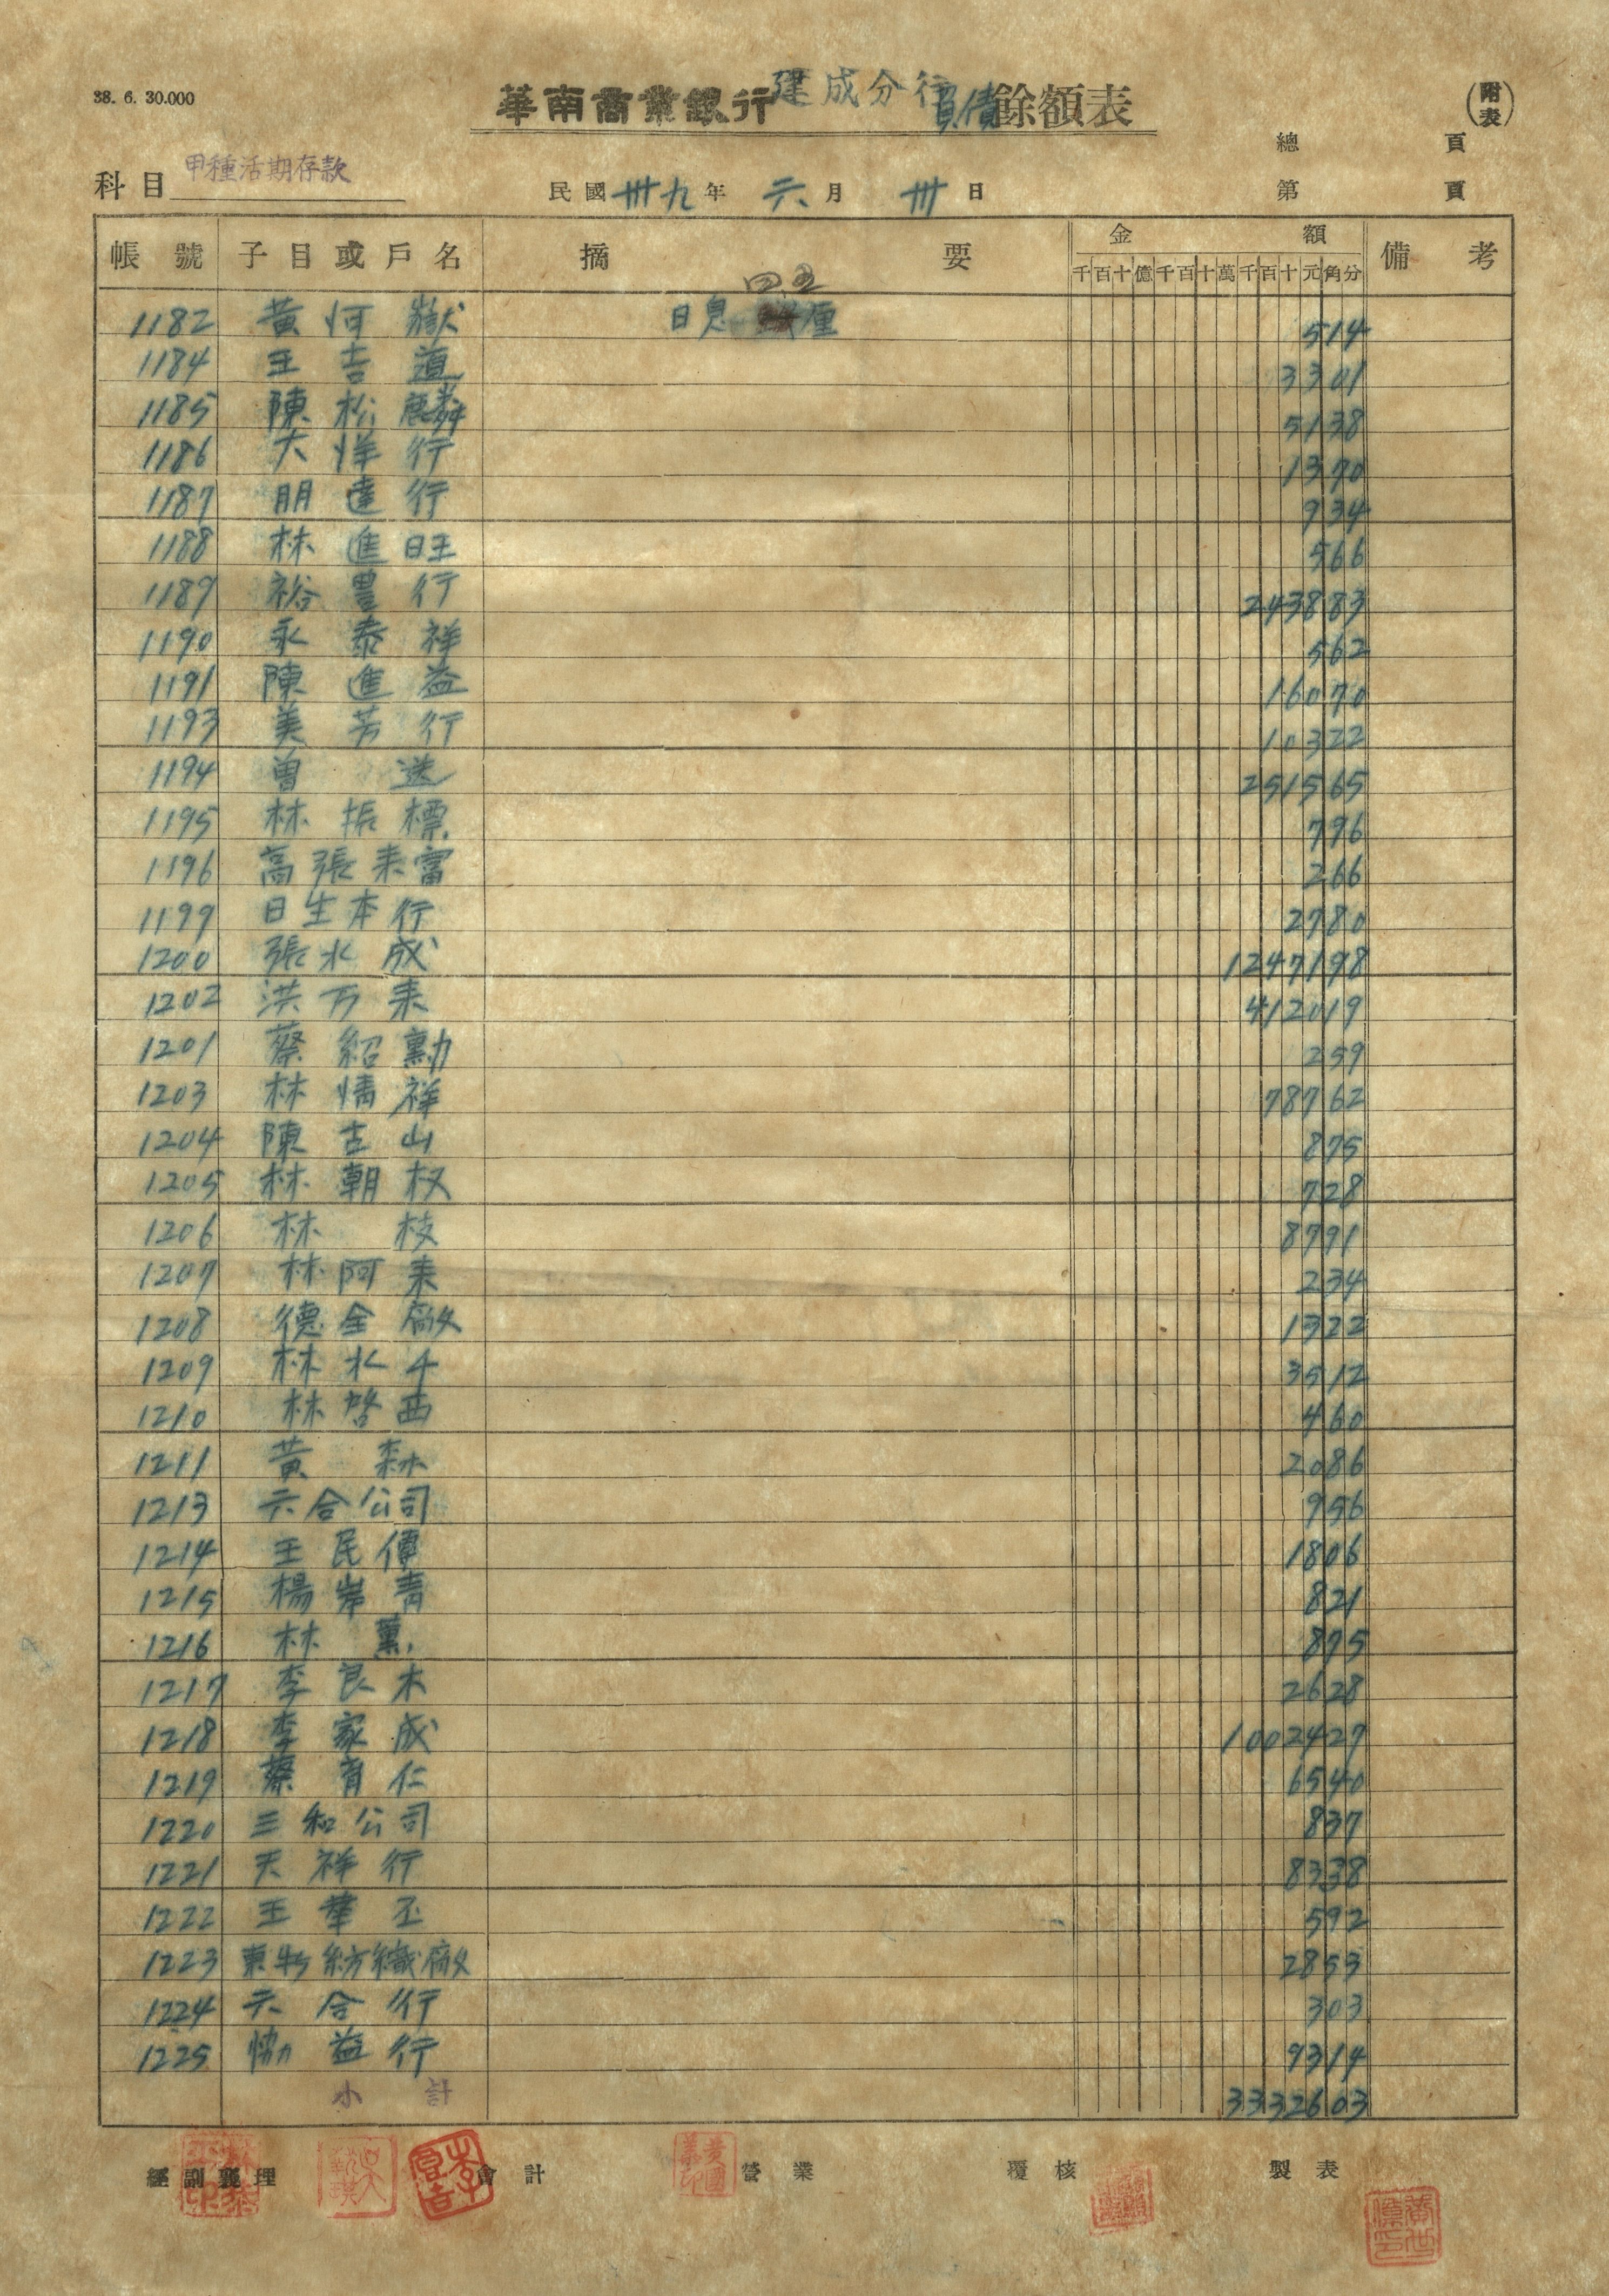 38. 6. 30.000
華南商業銀行建成分行負債餘額表
(附表)
總 頁
科目 甲種活期存款
民國卅九年 六月 卅日
第 頁
帳號 子目或戶名 摘要 金額 備考
千百十億千百十萬千百十元角分
四五
1182 黃河嶽 日息 厘 514
1184 王吉道 3301
1185 陳松麟 5138
1186 大洋行 1370
1187 朋達行 934
1188 林進旺 566
1189 裕豊行 243883
1190 永泰祥 562
1191 陳進益 16070
1193 美芳行 10322
1194 曽送 251565
1195 林振標 796
1196 高張来富 266
1199 日生本行 2780
1200 張水成 1247198
1202 洪万来 412019
1201 蔡紹勳 259
1203 林情祥 78762
1204 陳古山 875
1205 林朝权 728
1206 林枝 8791
1207 林阿来 234
1208 德全廠 1322
1209 林水千 3512
1210 林啓西 460
1211 黃森 2086
1213 六合公司 956
1214 王民僤 1806
1215 楊岸青 821
1216 林薫 875
1217 李良木 2628
1218 李家成 1002427
1219 蔡育仁 6540
1220 三和公司 837
1221 天祥行 8338
1222 王華丕 592
1223 東新紡織廠 2853
1224 六合行 303
1225 協益行 9314
小計 3332603
經副襄理 會計 營業 覆核 製表